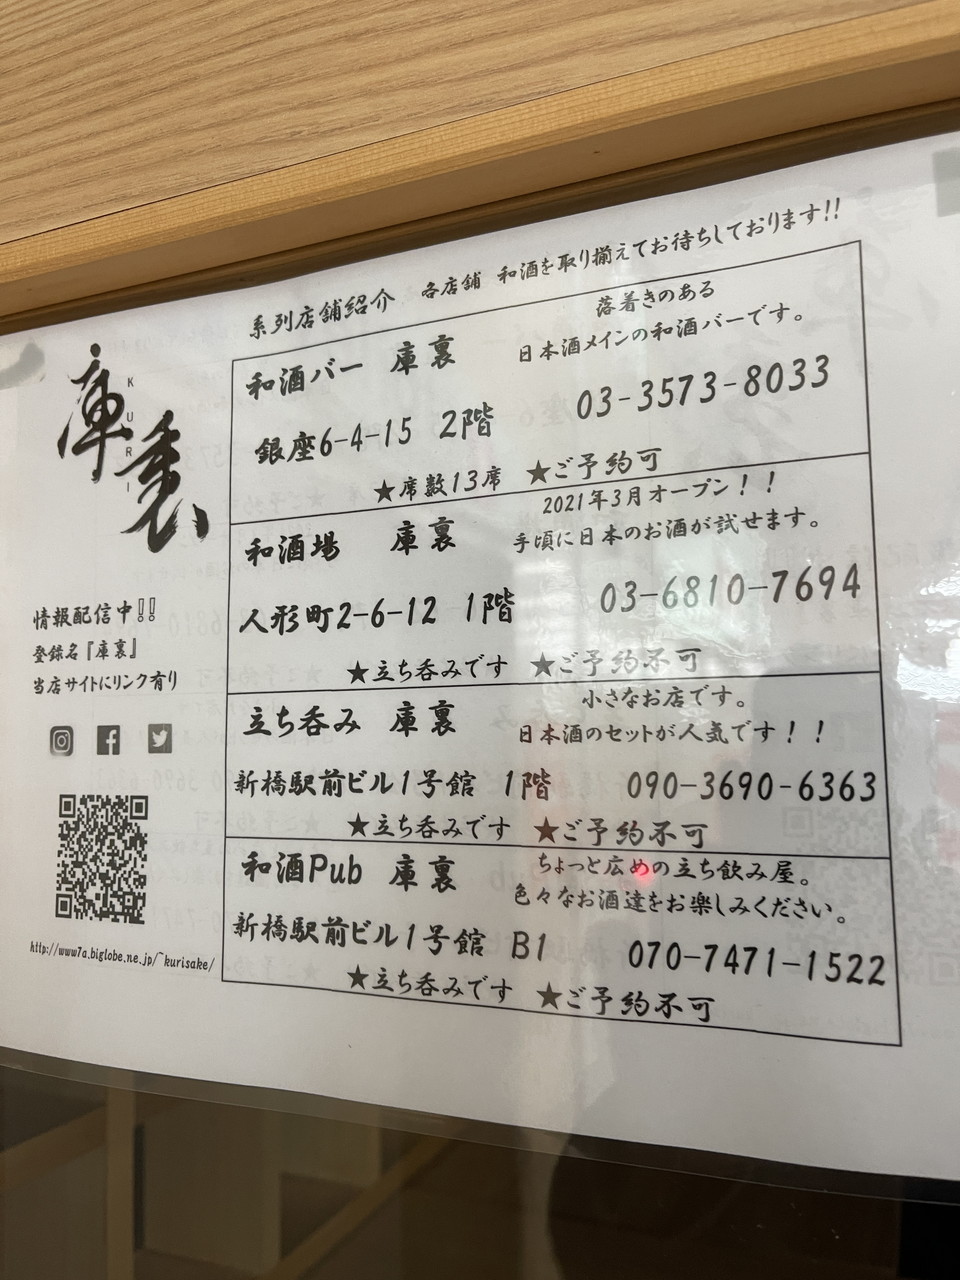 系列店舗紹介 各店舗 和酒を取り揃えてお待ちしております!!
庫裏
KURI
情報配信中!!
登録名『庫裏』
当店サイトにリンク有り
http://www7a.biglobe.ne.jp/~kurisake/
和酒バー 庫裏
落着きのある
日本酒メインの和酒バーです。
銀座6-4-15 2階
03-3573-8033
★席数13席 ★ご予約可
和酒場 庫裏
2021年3月オープン!!
手頃に日本のお酒が試せます。
人形町2-6-12 1階
03-6810-7694
★立ち呑みです ★ご予約不可
立ち呑み 庫裏
小さなお店です。
日本酒のセットが人気です!!
新橋駅前ビル1号館 1階
090-3690-6363
★立ち呑みです ★ご予約不可
和酒Pub 庫裏
ちょっと広めの立ち飲み屋。
色々なお酒達をお楽しみください。
新橋駅前ビル1号館 B1
070-7471-1522
★立ち呑みです ★ご予約不可